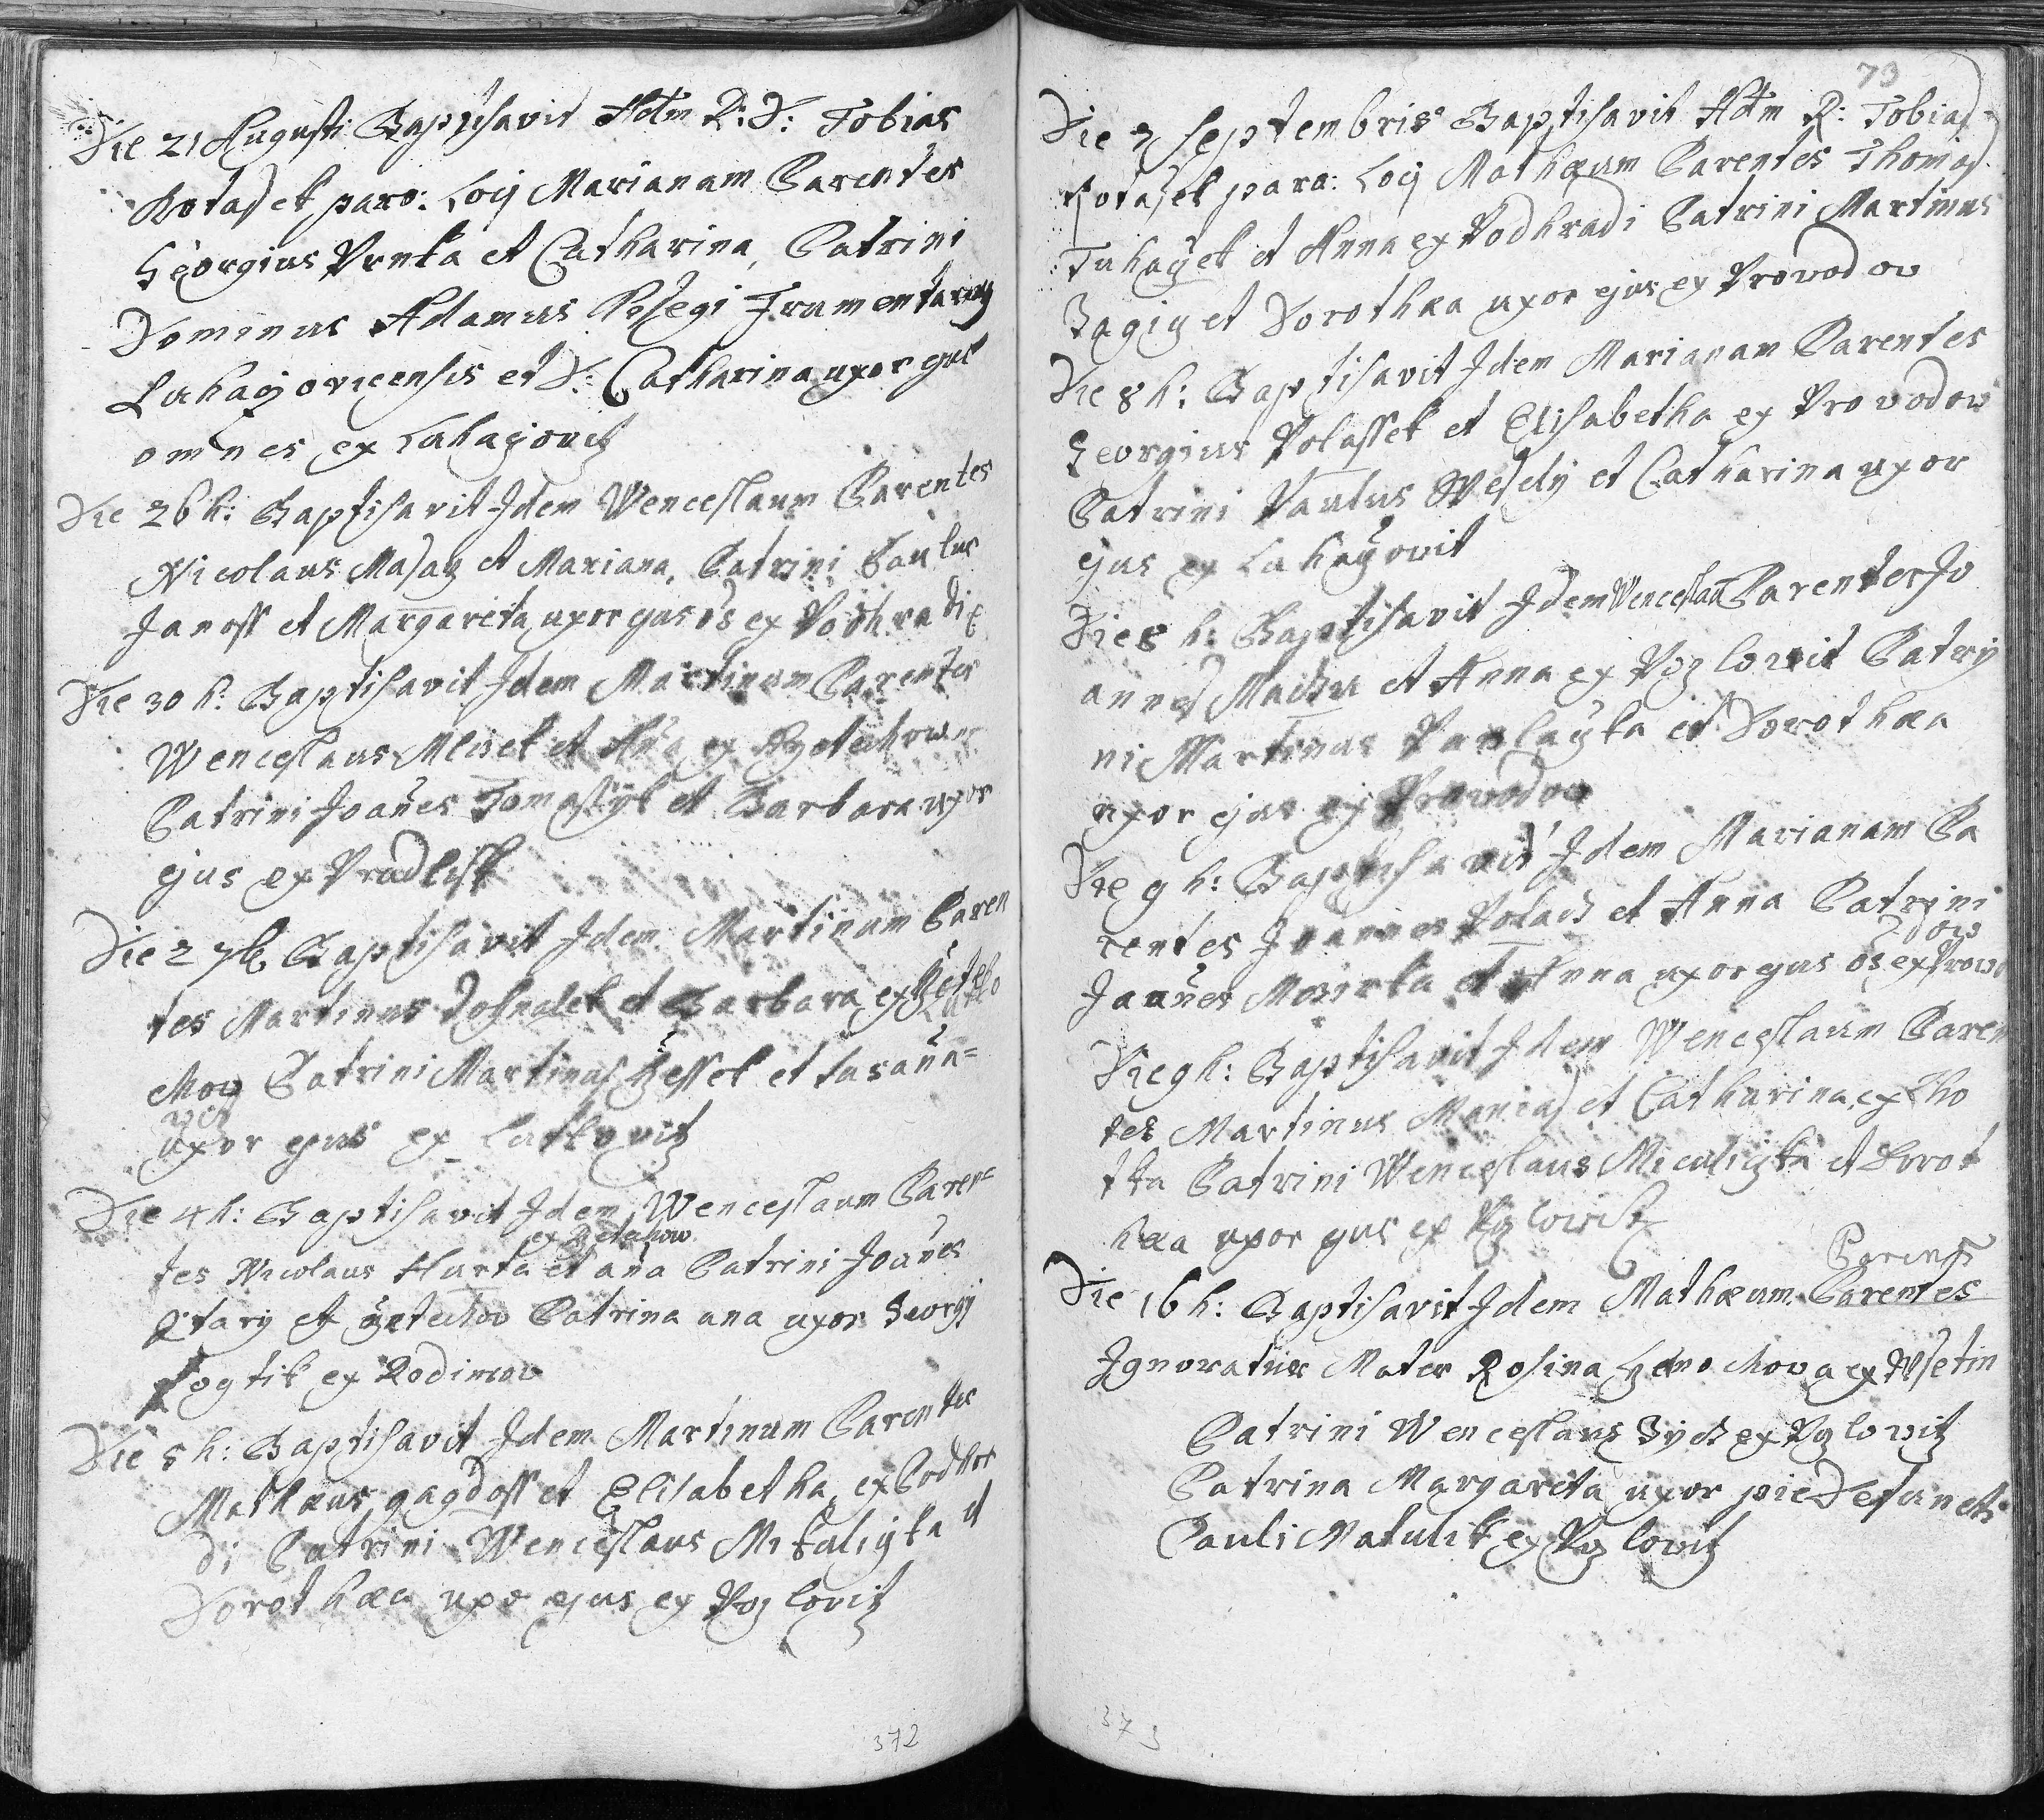 Die 21 Augusti Baptisavit Adm R: D: Tobias
Botasek paro: Locy Marianam Parentes
Georgius Vrnka et Catharina, Patrini
Dominus Adamus Frumentarius
Luhaczovicensis et D: Catharina uxor ejus
omnes ex Luhaczovitz
Die 26 h: Baptisavit Idem Wenceslaum Parentes
Nicolaus Masaz et Mariana, Patrini Paulus
Janoss et Margareta uxor ejus oes ex Podhradi
Die 30 h: Baptisavit Idem Martinum Parentes
Wenceslaus Mlisek et Ana ex
Patrini Joanes Tomastyk et Barbara uxor
ejus ex Pradlisk
Die 2 7b Baptisavit Idem Martinum Paren
tes Martinus Dosnalek et Barbara ex Rzeteho
chow Patrini Martinus et Susana=
uxor ejus ex Lutkovitz
Die 4 h: Baptisavit Idem Wenceslaum Paren=
ex Retechow
tes Nicolaus Hurta et ana Patrini Joanes
et Patrina ana uxor Georgy
Fogtik ex Rodimow
Die 5 h: Baptisavit Idem Martinum Parentes
Mathaeus gagdoss et Elisabetha ex Podhra
di Patrini Wenceslaus Mikuligka et
Dorothaea uxor ejus ex Pozlovitz
372
73
Die 7 Septembris Baptisavit Adm R: Tobias
Botasek paro: Locy Mathaeum Parentes Thomas
Tuhaczek et Anna ex Podhradi Patrini Martinus
et Dorothaea uxor ejus ex Provodow
Die 8 h: Baptisavit Idem Marianam Parentes
Georgius Polassek et Elisabetha ex Provodow
Patrini Paulus Wesely et Catharina uxor
ejus ex Luhaczowit
Die 8 h: Baptisavit Idem Wenceslau Parentes Jo
annes Machu et Anna ex Pozlowit Patry
ni Martinus et Dorothaea
uxor ejus ex Provodow
Die 9 h: Baptisavit Idem Marianam Pa
rentes Joannes Polach et Anna Patrini
dow
Joanes et Anna uxor ejus oes ex Prowo
Die 9 h: Baptisavit Idem Wenceslaum Paren
tes Martinus Manias et Catharina, ex Lho
tka Patrini Wenceslaus Miculigka et Dorot
haea uxor ejus ex Pozlowitz
Parens
Die 16 h: Baptisavit Idem Mathaeum. Parentes
Ignoratur Mater Rosina ex Wsetin
Patrini Wenceslaus ex Pozlovitz
Patrina Margareta uxor pie Defuncti
Pauli Matulik ex Pozlovitz
373